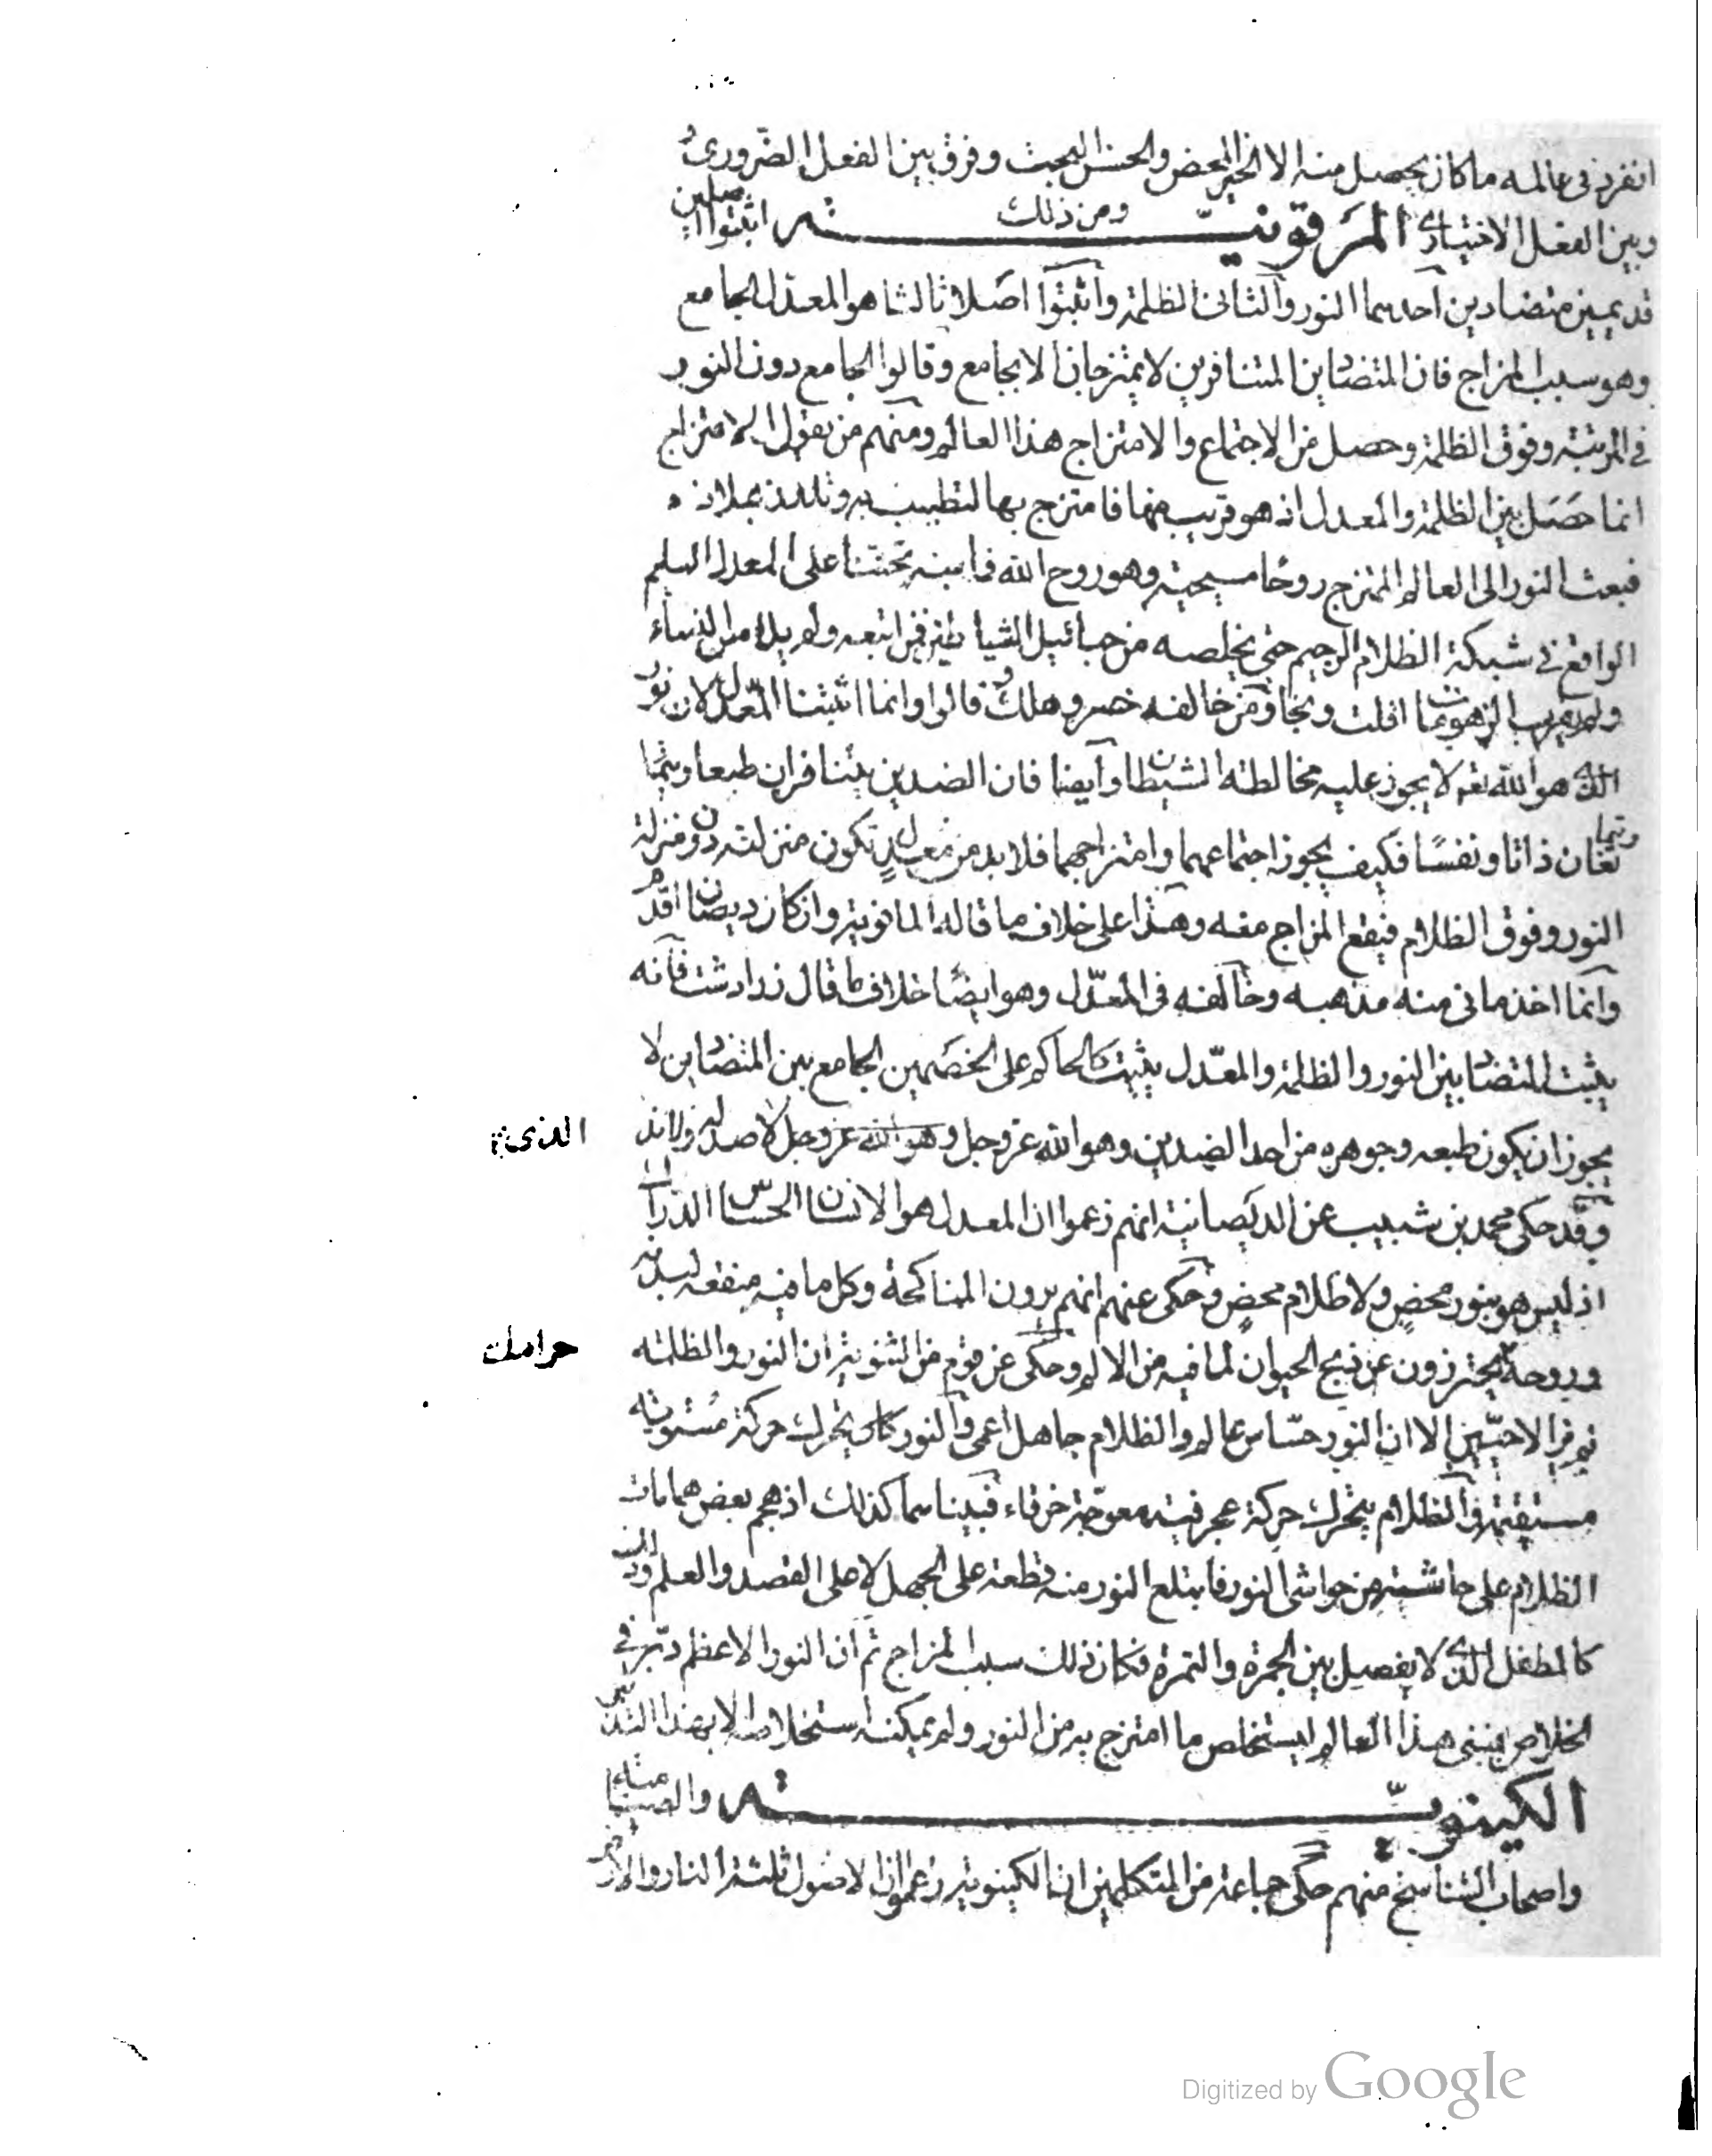 انفرد فى عالمه ما كان يحصل منه الا الخير المحض والحسن البحت وفرق بين الفعل الضرورى
وبين الفعل الاختيارى ومن ذلك المرقونيـــة اثبتوا اصلين
قديمين متضادين احدهما النور والثانى الظلمة واثبتوا اصلا ثالثا هو المعدل الجامع
وهو سبب المزاج فان المتضادين المتنافرين لا يمتزجان الا بجامع وقالوا الجامع دون النور
فى المرتبة وفوق الظلمة وحصل من الاجتماع والامتزاج هذا العالم ومنهم من يقول الامتزاج
انما حصل بين الظلمة والمعدل اذ هو قريب منها فامتزج بها لتطيب به وتلتذ بملاذه
فبعث النور الى العالم الممتزج روحا مسيحية وهو روح الله وابنه تحننا على المعدل السليم
الواقع فى شبكة الظلام الرجيم حتى يخلصه من حبائيل الشياطين فمن اتبعه ولم يلامس النساء
ولم يقرب الزهومات افلت ونجا ومن خالفه خسر وهلك قالوا وانما اثبتنا المعدل لان نور
الذى هو الله تع لا يجوز عليه مخالطة الشيطان وايضا فان الضدين يتنافران طبعا ويتما
ويتما
نعان ذاتا ونفسا فكيف يجوز اجتماعهما وامتزاجهما فلا بد من معدل تكون منزلته دون منزلة
النور وفوق الظلام فيقع المزاج معه وهذا على خلاف ما قاله المانوية وان كان ديصان اقدم
وانما اخذ مانى منه مذهبه وخالفه فى المعدل وهو ايضا خلاف ما قال زرادشت فانه
يثبت التضاد بين النور والظلمة والمعدل يثبت كالحاكم على الخصمين الجامع بين المتضادين لا
يجوز ان يكون طبعه وجوهره من احد الضدين وهو الله عز وجل وهو الله عز وجل لا ضد له ولا ند
الذى
وقد حكى محمد بن شبيب عن الديصانية انهم زعموا ان المعدل هو الانسان الحساس الدراك
اذ ليس هو بنور محض ولا ظلام محض وحكى عنهم انهم يرون المناكحة وكل ما فيه منفعة لبدنه
وروحه يحترزون عن ذبح الحيوان لما فيه من الالم وحكى عن قوم من الثنوية ان النور والظلمة
حراما
لم يزالا حيين الا ان النور حساس عالم والظلام جاهل اعمى والنور يتحرك حركة مستوية
مستقيمة والظلام يتحرك حركة عجرفية معوجة خرقاء فبينا هما كذلك اذ هجم بعض همامات
الظلام على حاشية من حواشى النور فابتلع النور منه قطعة على الجهل لا على القصد والعلم وذلك
كالطفل الذى لا يفصل بين الجمرة والتمرة فكان ذلك سبب المزاج ثم ان النور الاعظم دبر فى
الخلاص فبنى هذا العالم ليستخلص ما امتزج به من النور ولم يمكنه استخلاصه الا بهذا التدبير
الكينويـــة والصيامية
واصحاب التناسخ منهم حكى جماعة من المتكلمين ان الكينوية زعموا ان الاصول ثلثة النار والارض
Digitized by Google